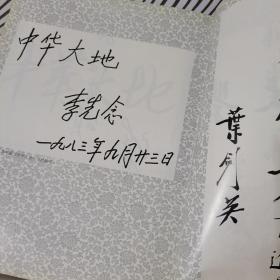 中华大地
李先念
一九八三年九月廿三日
葉剑英